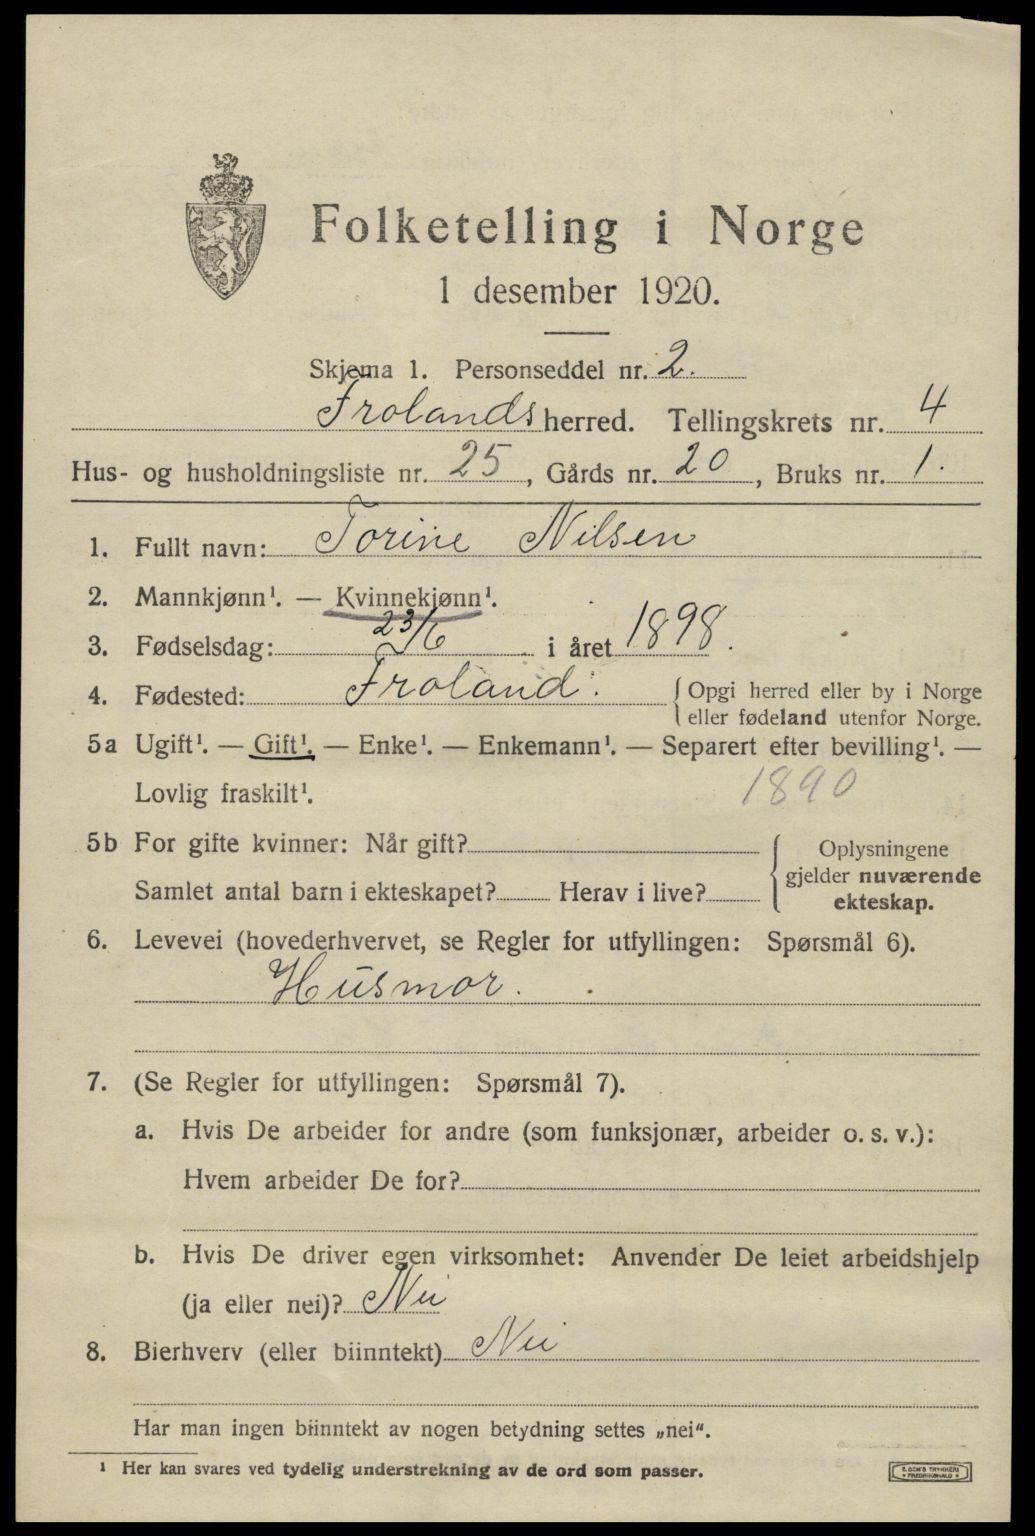 Folketelling i Norge
1 desember 1920.
Skjema 1. Personseddel nr. 2.
Frolands herred. Tellingskrets nr. 4
Hus- og husholdningsliste nr. 25, Gårds nr. 20, Bruks nr. 1.
1. Fullt navn: Torine Nilsen
2. Mannkjønn¹. — Kvinnekjønn¹.
3. Fødselsdag: 23/6 i året 1898.
4. Fødested: Froland. Opgi herred eller by i Norge
eller fødeland utenfor Norge.
5a Ugift¹. — Gift¹. — Enke¹. — Enkemann¹. — Separert efter bevilling¹. —
Lovlig fraskilt¹. 1890
5b For gifte kvinner: Når gift? Oplysningene
gjelder nuværende
Samlet antal barn i ekteskapet? Herav i live? ekteskap.
6. Levevei (hovederhvervet, se Regler for utfyllingen: Spørsmål 6).
Husmor.
7. (Se Regler for utfyllingen: Spørsmål 7).
a. Hvis De arbeider for andre (som funksjonær, arbeider o. s. v.):
Hvem arbeider De for?
b. Hvis De driver egen virksomhet: Anvender De leiet arbeidshjelp
(ja eller nei)? Nei
8. Bierhverv (eller biinntekt) Nei
Har man ingen biinntekt av nogen betydning settes „nei".
¹ Her kan svares ved tydelig understrekning av de ord som passer.